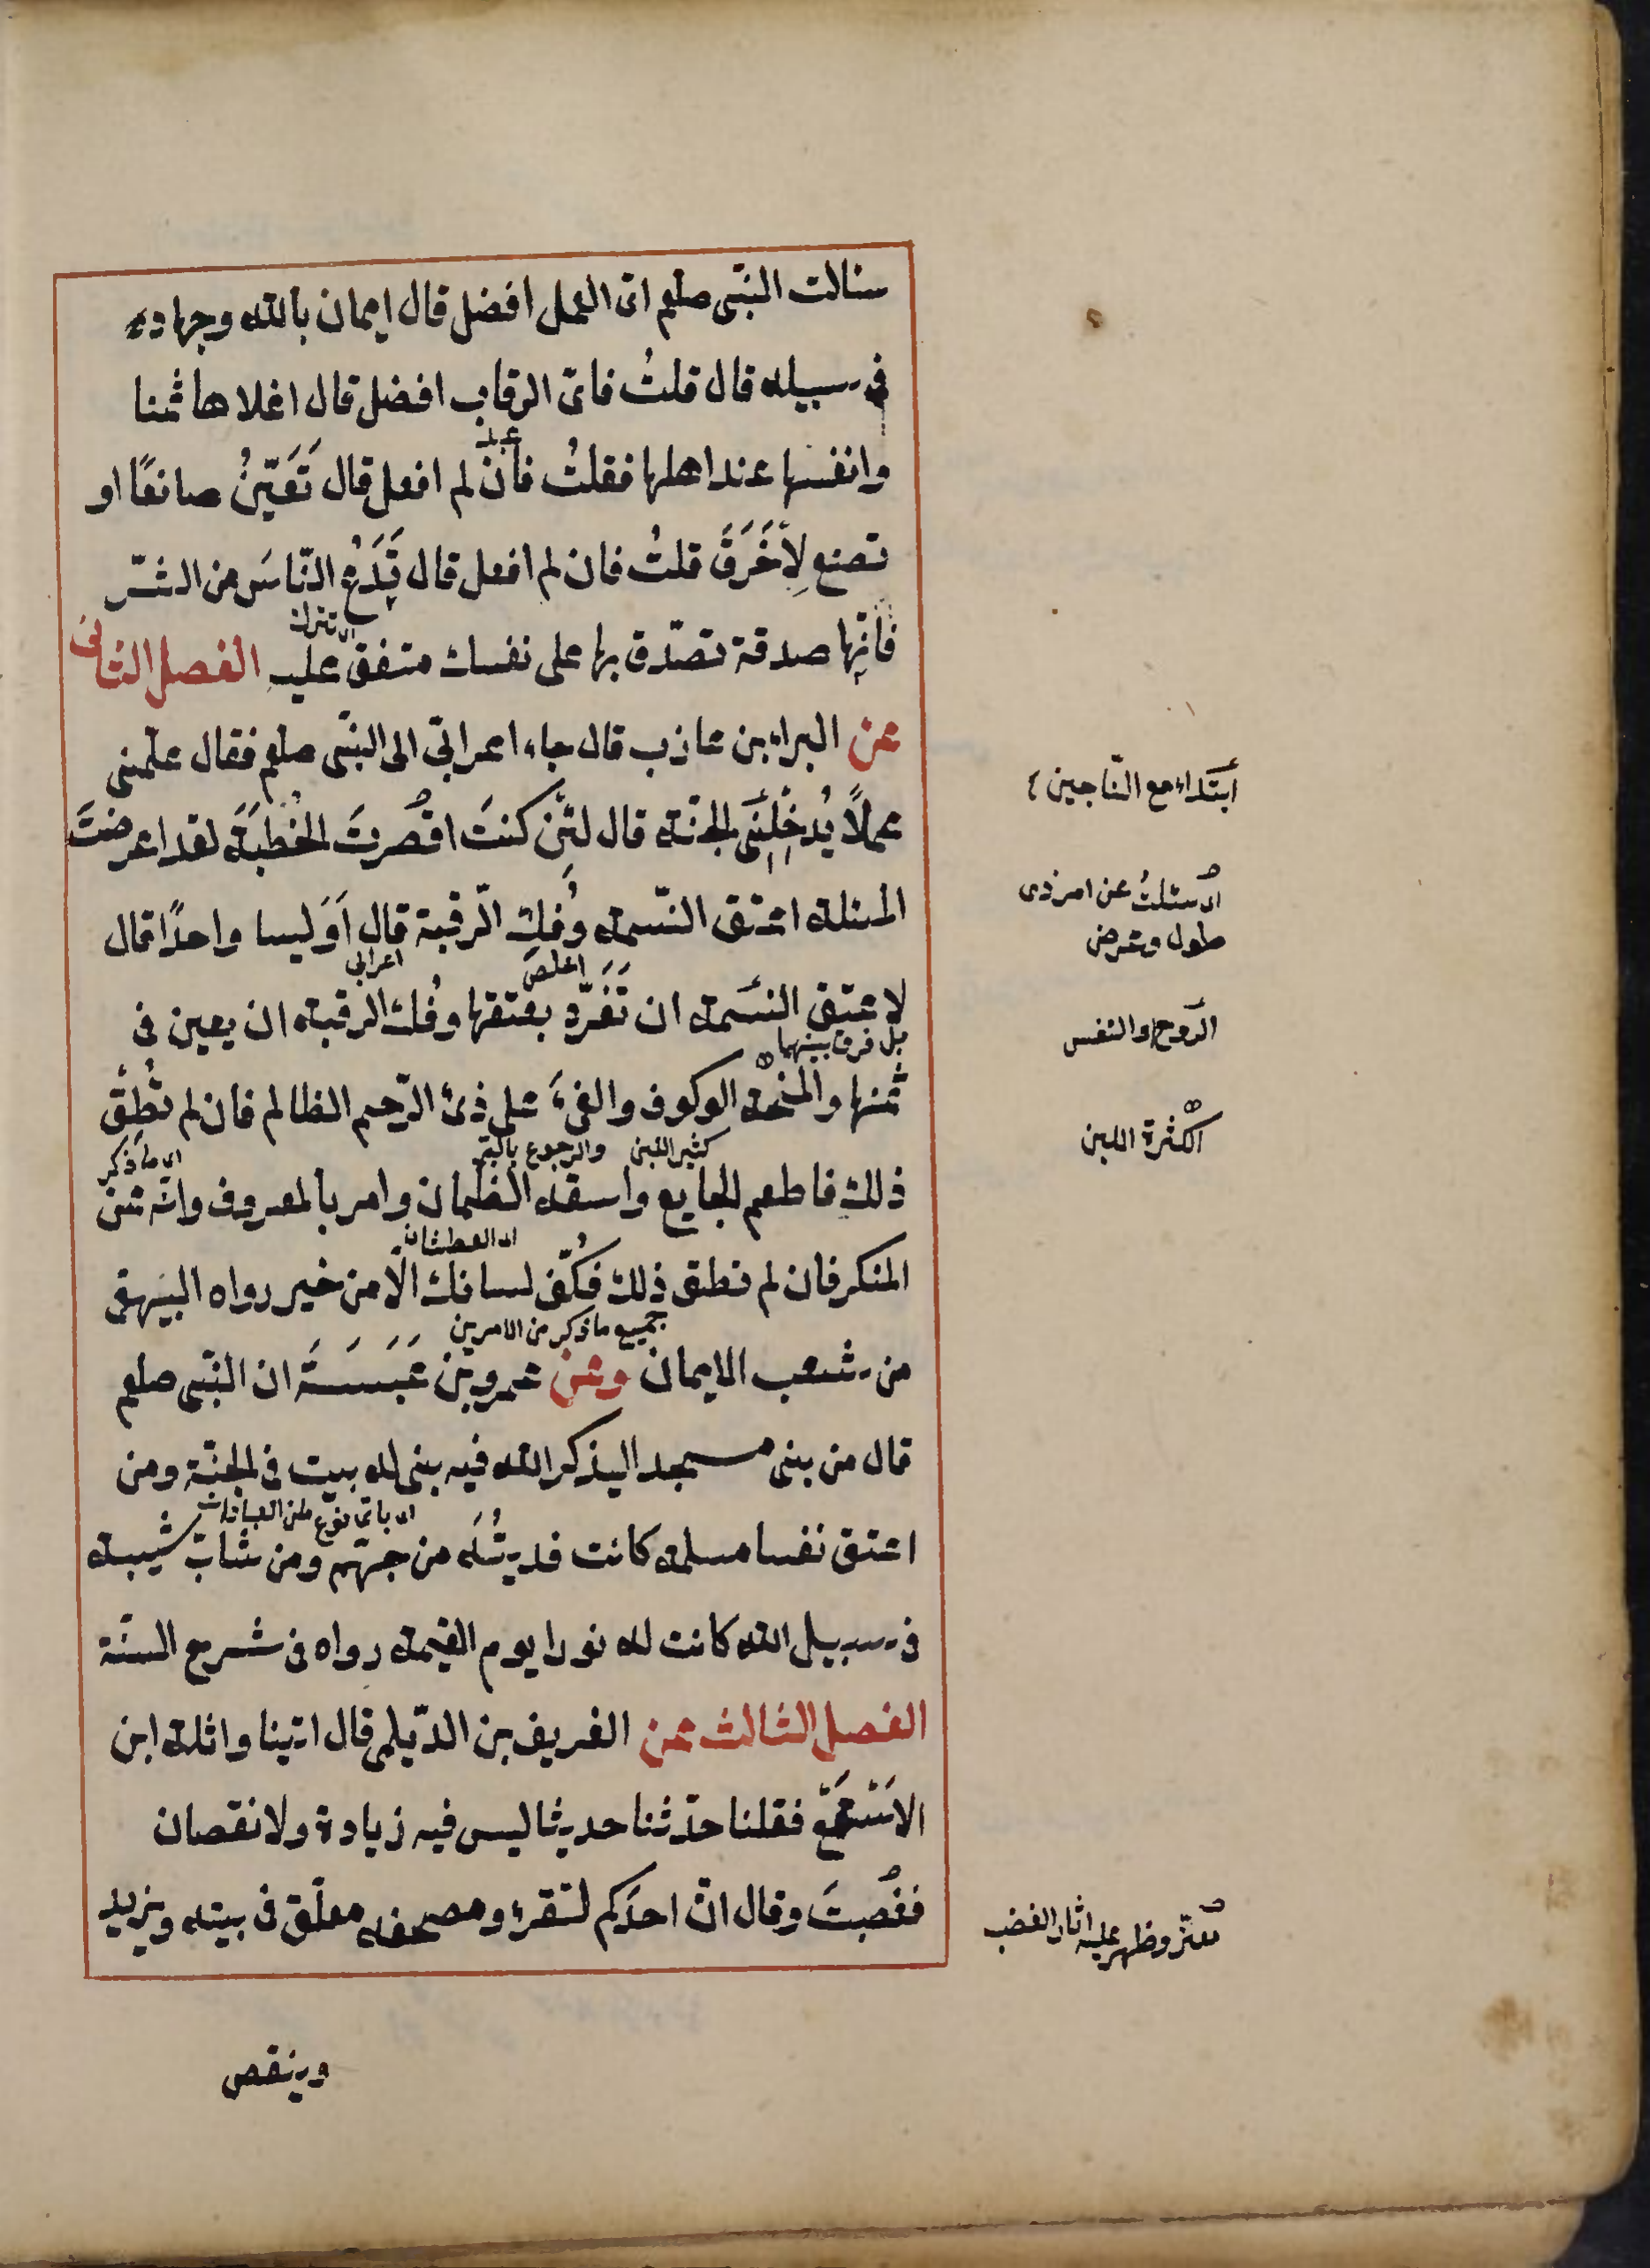 سئالت النبّى صلعم اىّ العمل افضل قال ايمان بالله وجهاده
فى سبيله قال قلتُ فاىّ الرقاب افضل قال اغلاها ثمنا
وانفسها عند اهلها فقلتُ فان لم افعل قال تَعَيّنُ صانعًا او
عبد
تصنع لِأَخَرَقَ قلتُ فان لم افعل قال تَدَعُ النّاسَ من الشّر
فانّها صدقة تصّدق بها على نفسك متفق عليه الفصل الثانى
اى تترك
عن البراء بن عازب قال جاء اعرابىّ الى النبّى صلعم فقال علّمنى
عملًا يُدخِلُنِى الجنّة قال لئِن كنتَ اقصُرتَ الخُطبَةَ لقد اعرضتَ
المسئلة اعتق النّسمة وُفك الرّقبة قال أَوَليسا واحدًا قال
لا عتق النسَمة ان تَفَرَّد بعتقها وفُك الرقبة ان يعين فى
اخلص
اعرابى
ثمنها والمنحة الوكوف والفىءَ على ذىْ الرّحم الظالم فان لم تُطِقْ
بل فرق بينهما
ذلك فاطعم الجايع واسقه الظمان وامر بالمعروف وانه عن
كثير اللبن والرجوع بالبّر
اى ما ذكر
المنكر فان لم تطق ذلك فكُفّ لسانك الّا من خير رواه البيهقى
اى العطشان
من شعب الايمان وعن عمرو بن عَبَسَةَ ان النبّى صلعم
جميع ما ذكر من الامرين
قال من بنى مسجدا ليذكر الله فيه بنى له بيت فى الجنّة ومن
اعتق نفسا مسلمة كانت فديتُه من جهنم ومن شابّ شيبة
اى باىّ نوع من العبادات
فى سبيل الله كانت له نورا يوم القيمة رواه فى شرح السنّة
الفصل الثالث عن الغريف بن الدّيلمى قال اتينا واثلة ابن
الاَسْقَعّ فقلنا حدّثنا حديثا ليس فيه زيادة ولا نقصان
فغضبتَ وقال انّ احدَكم لتقرء ومصحفه معلّق فى بيته ويزيد
وينقص
ابتداء مع النّاجين
اى سئلتُ عن امر ذى
طول وعرض
الرّوح او النفس
اكثرة اللبن
تغيّر وظهر عليه اثار الغضب